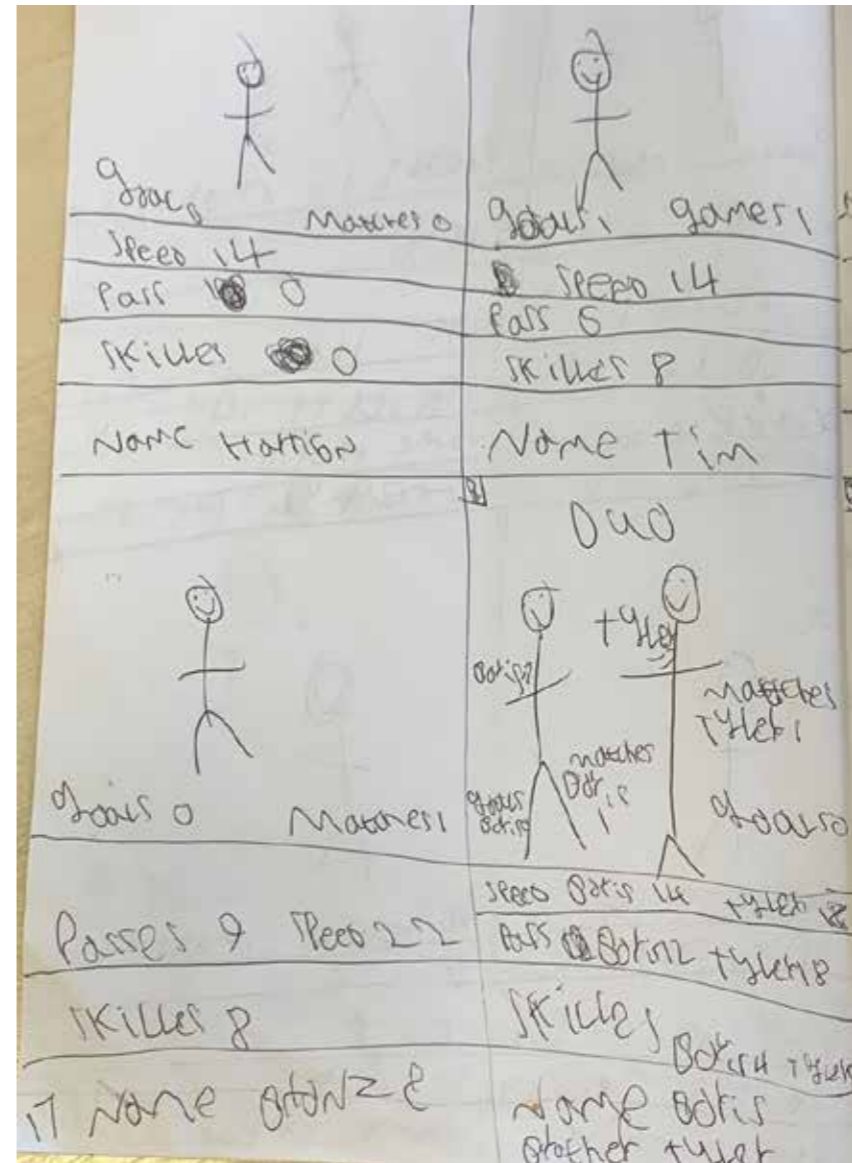 Goals Matches 0
Speed 14
Pass 0
Skilles 0
Name
Goals 1 games 1
Speed 14
Pass 6
Skilles 8
Name Tim
Goals 0 Matches 1
Passes 9 Speed 22
Skilles 8
17 Name
Duo
Tyler
Boris
Matches
Tyler 1
matches
Boris
1
goals
Boris
Goals 0
Speed Boris 14 Tyler
Pass Boris 12 Tyler 18
Skilles
Boris 4 Tyler
Name Boris
Brother Tyler